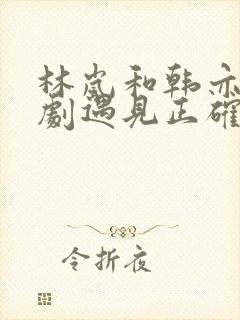 林岚和韩亦
劇遇見正確
令折夜